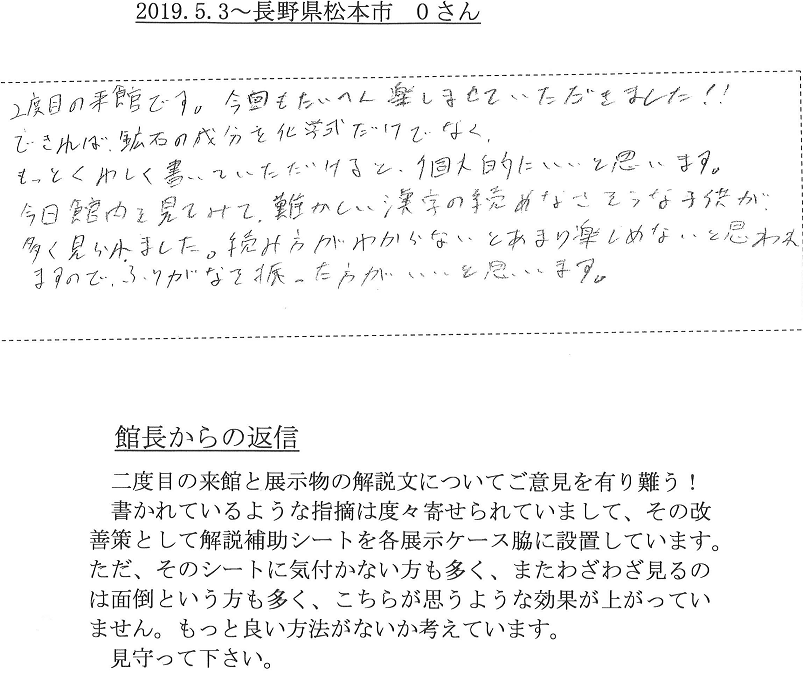 2019.5.3～長野県松本市　Oさん
2度目の来館です。今回もたいへん楽しませていただきました!!
できれば、鉱石の成分を化学式だけでなく、
もっとくわしく書いていただけると、個人的にいいと思います。
今日館内を見てみて、難かしい漢字の読めなさそうな子供が、
多く見られました。読み方がわからないとあまり楽しめないと思われ
ますので、ふりがなを振った方がいいと思います。
館長からの返信
二度目の来館と展示物の解説文についてご意見を有り難う！
書かれているような指摘は度々寄せられていまして、その改
善策として解説補助シートを各展示ケース脇に設置しています。
ただ、そのシートに気付かない方も多く、またわざわざ見るの
は面倒という方も多く、こちらが思うような効果が上がってい
ません。もっと良い方法がないか考えています。
見守って下さい。